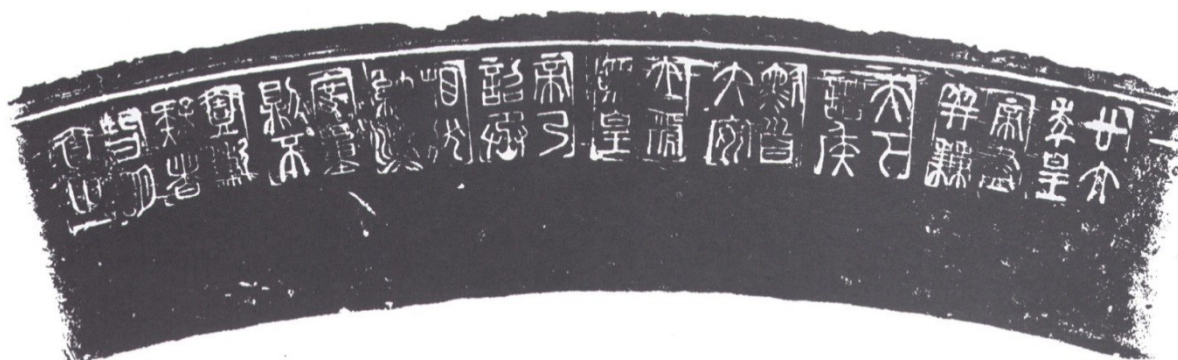 廿六
年皇
帝盡
并兼
天下
諸侯
黔首
大安
立號
為皇
帝乃
詔丞
相狀
綰灋
度量
則不
壹歉
疑者
皆明
壹之